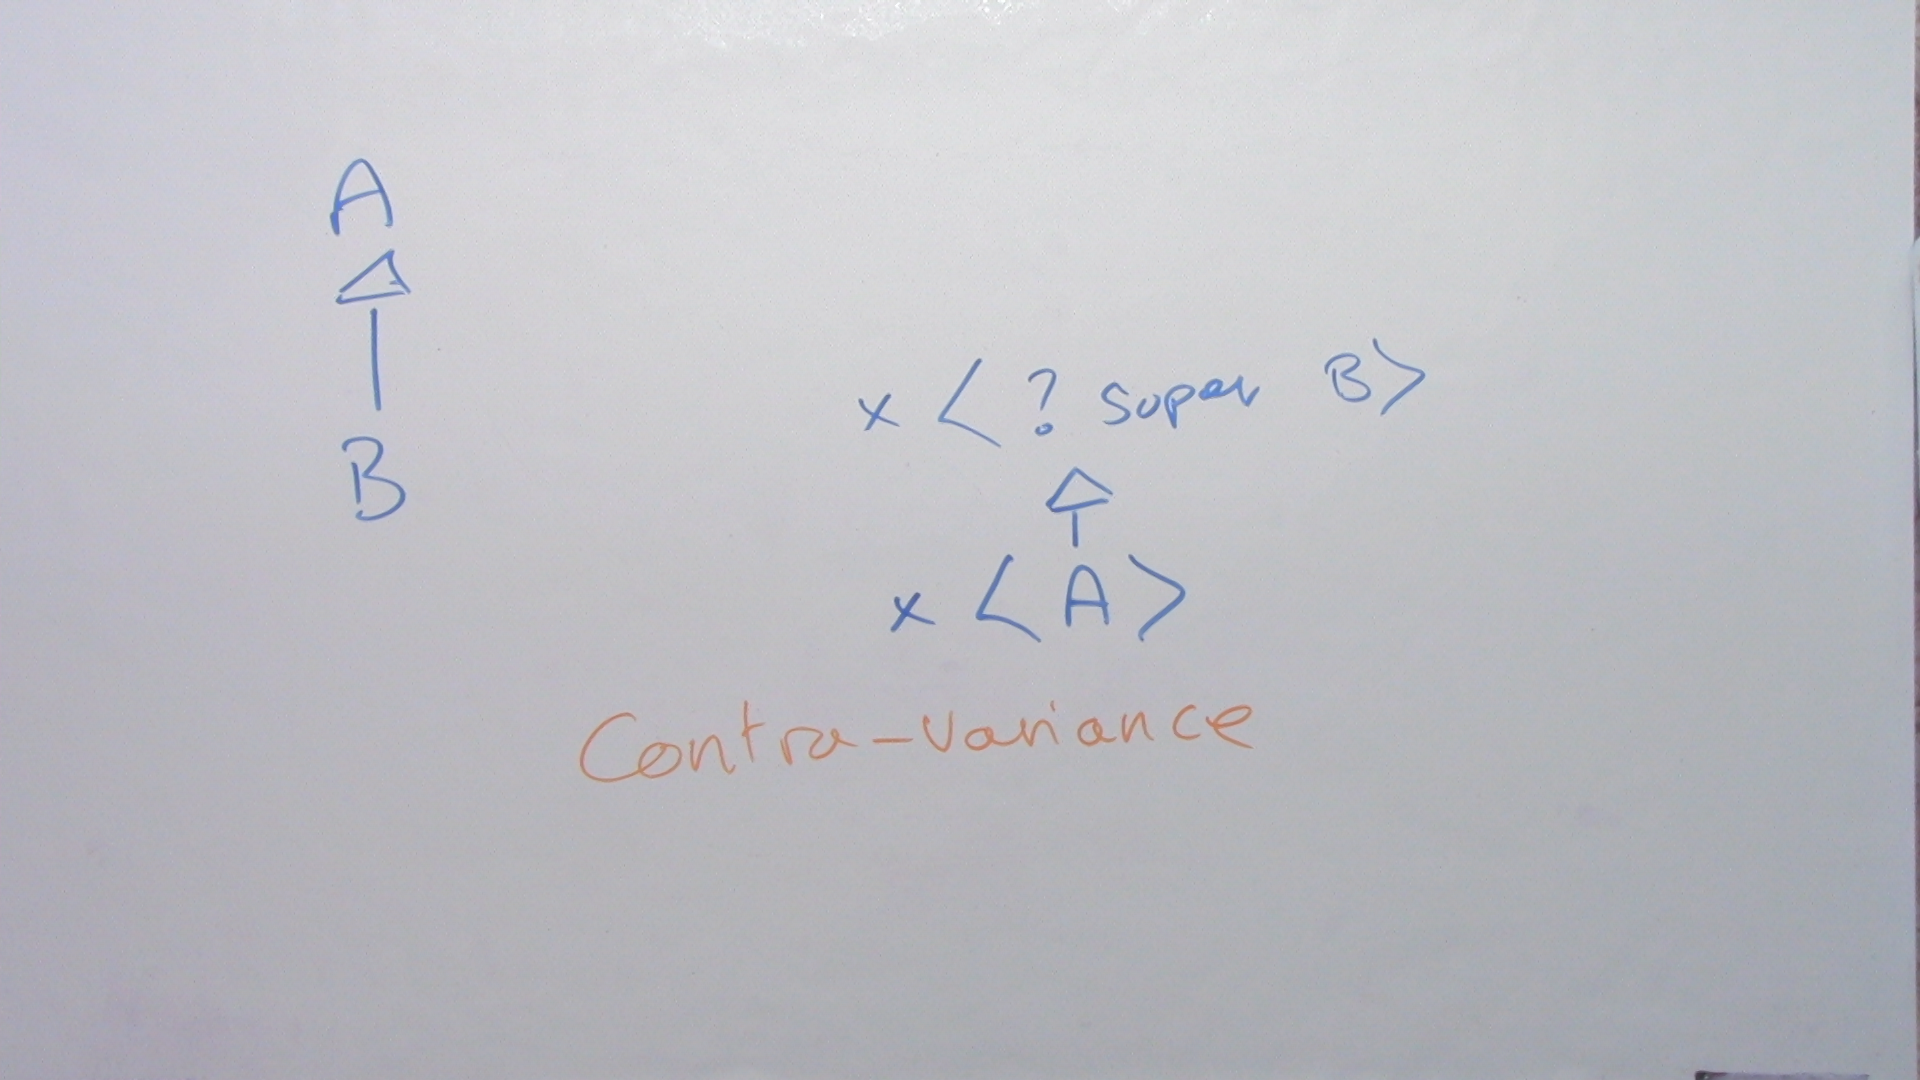 A
B
x < ? super B>
x < A >
Contra-variance